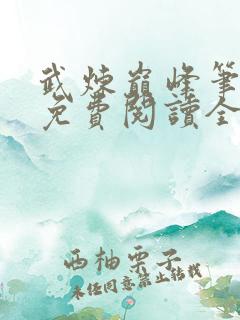 武煉巔峰筆
免費閱讀全
西柚栗子
未經同意禁止轉載